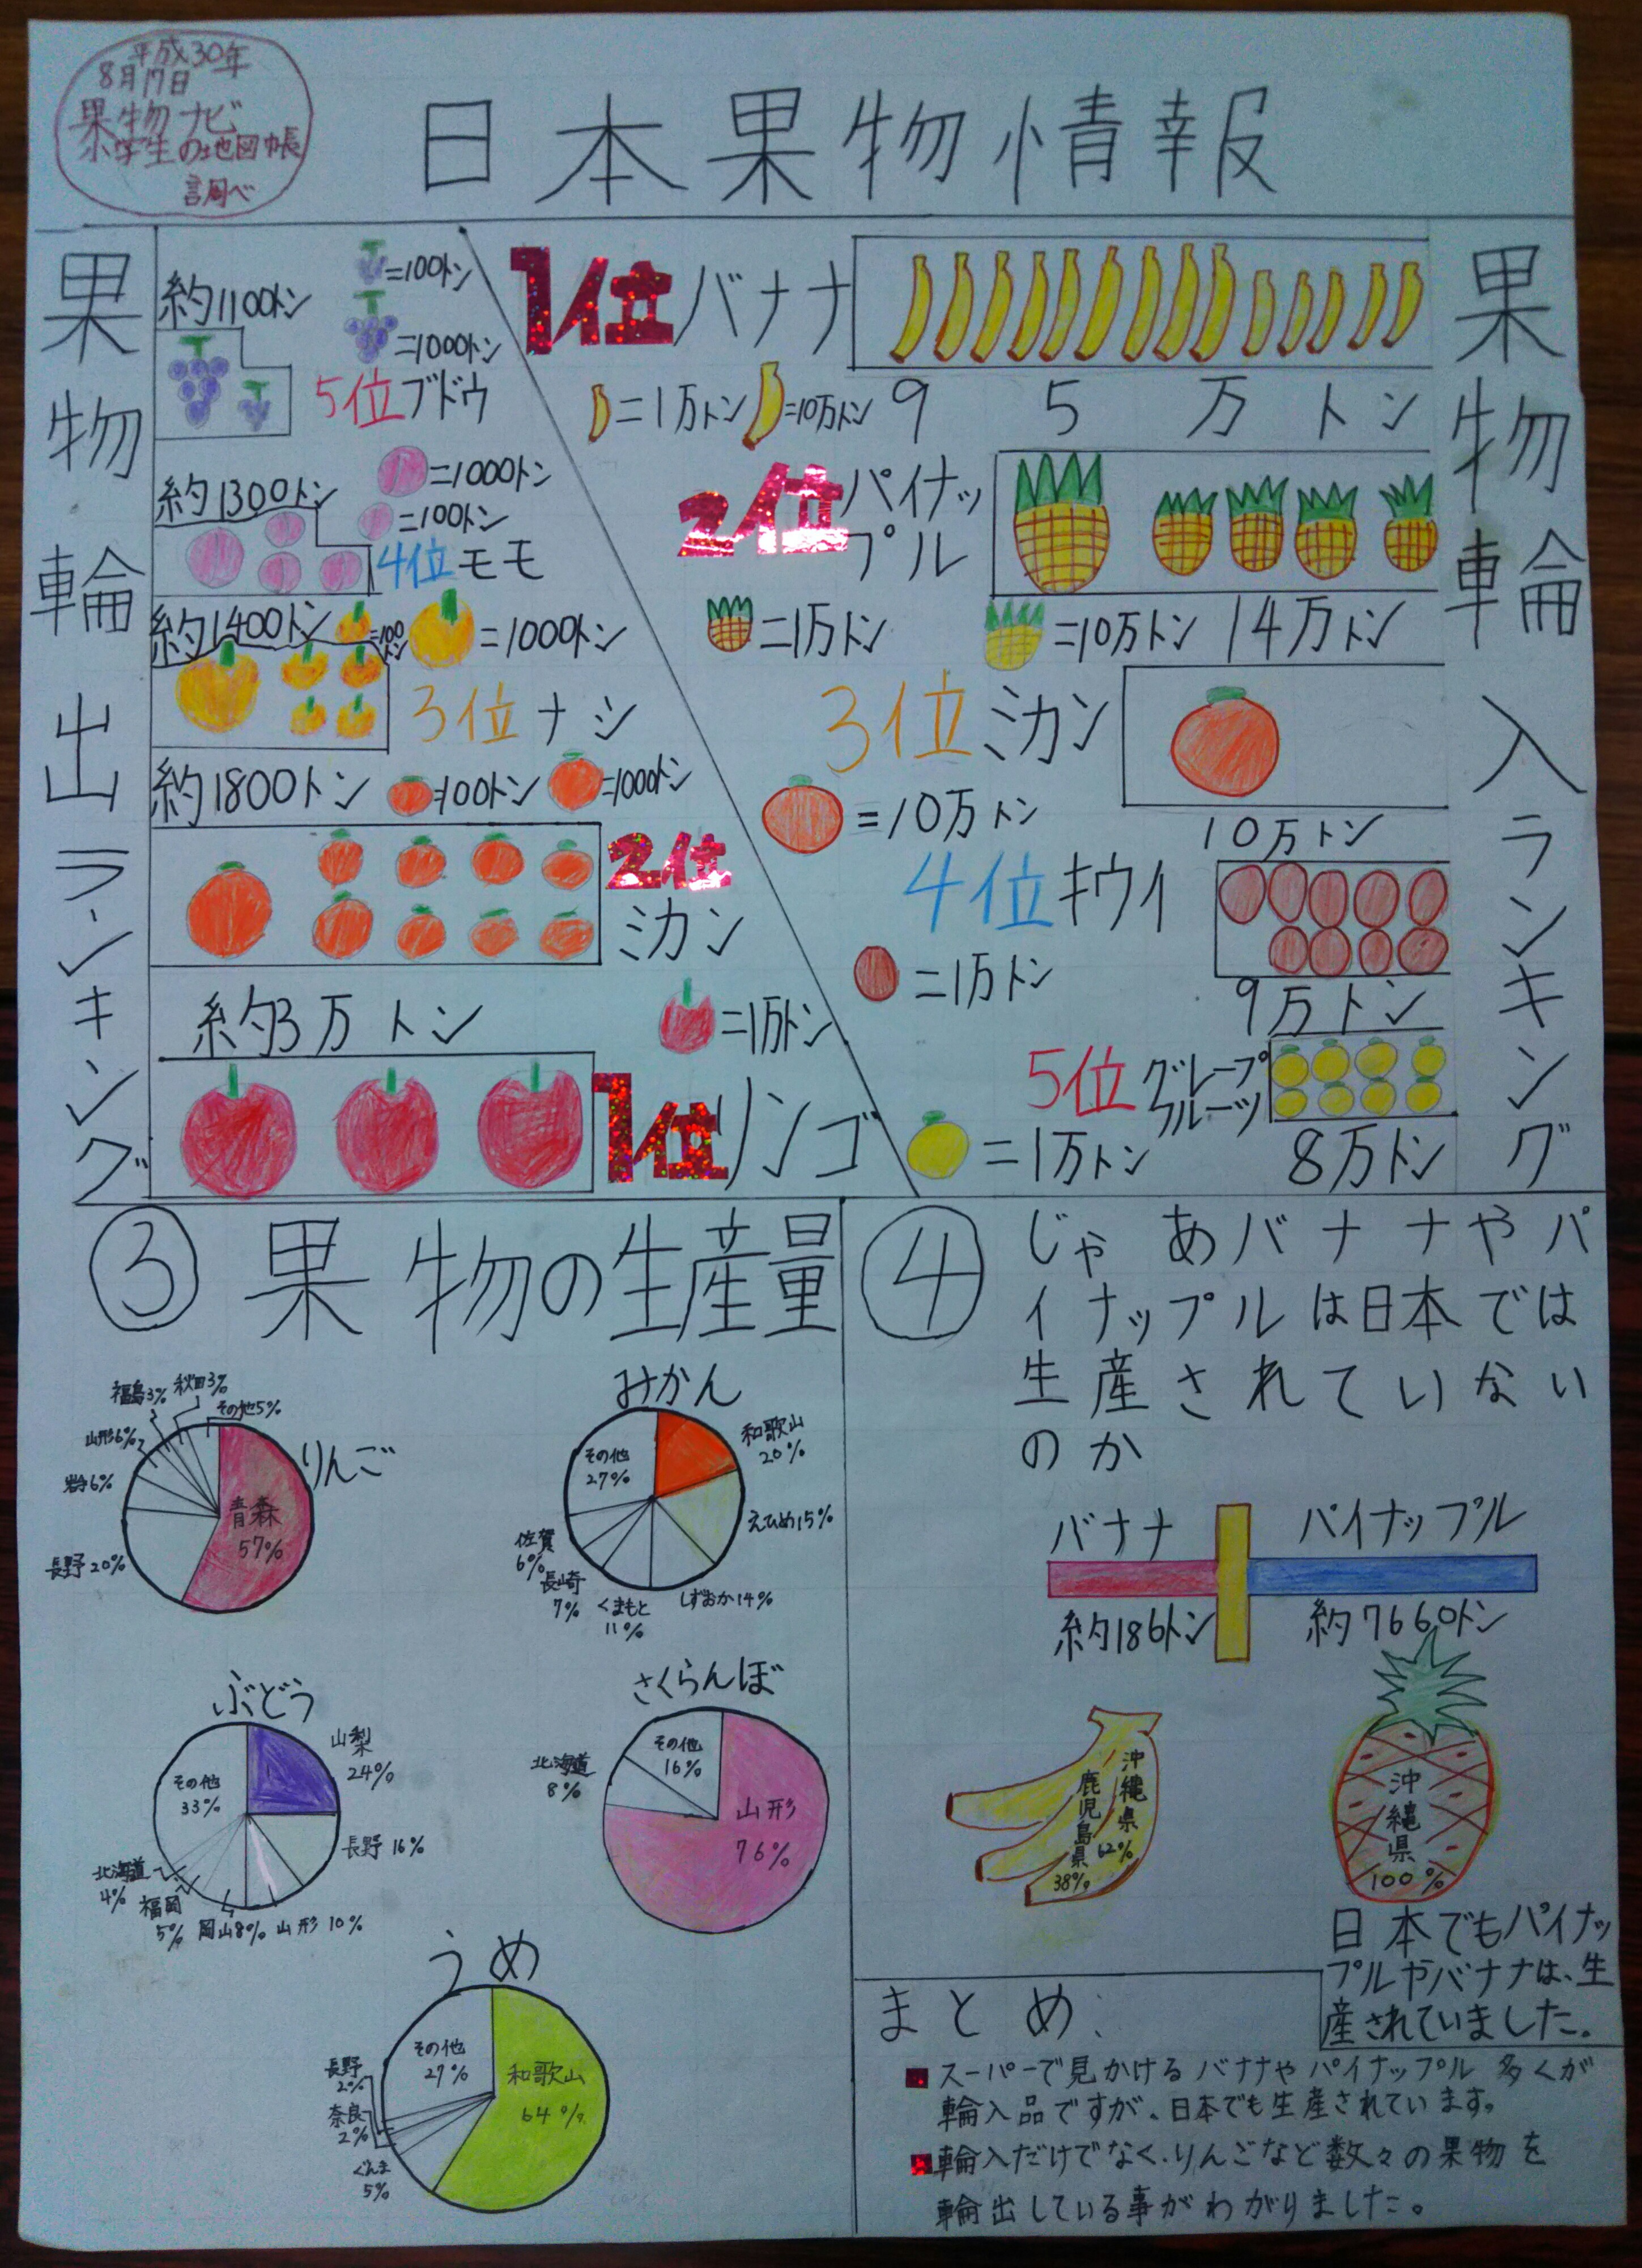 平成30年
8月17日
果物ナビ
小学生の地図帳
調べ
日本果物情報
果物輪出ランキング
約1100トン
=100トン
=1000トン
5位ブドウ
約1300トン
=1000トン
=100トン
4位モモ
約1400トン
=100トン
=1000トン
3位ナシ
約1800トン
=100トン
=1000トン
2位
ミカン
約3万トン
=1万トン
1位リンゴ
果物輪入ランキング
1位バナナ
=1万トン
=10万トン
95万トン
2位パイナッ
プル
=1万トン
=10万トン
14万トン
3位ミカン
=10万トン
10万トン
4位キウイ
=1万トン
9万トン
5位グレープ
フルーツ
=1万トン
8万トン
③果物の生産量
りんご
青森
57%
長野20%
岩手6%
山形6%
福島3%
秋田3%
その他5%
みかん
和歌山
20%
えひめ15%
しずおか14%
くまもと
11%
長崎
7%
佐賀
6%
その他
27%
ぶどう
山梨
24%
長野16%
山形10%
岡山8%
福岡
5%
北海道
4%
その他
33%
さくらんぼ
山形
76%
北海道
8%
その他
16%
うめ
和歌山
64%
ぐんま
5%
奈良
2%
長野
2%
その他
27%
④じゃあバナナやパ
イナップルは日本では
生産されていない
のか
バナナ
パイナップル
約186トン
約7660トン
沖縄県
62%
鹿児島県
38%
沖縄県
100%
日本でもパイナッ
プルやバナナは、生
産されていました。
まとめ
スーパーで見かけるバナナやパイナップル多くが
輪入品ですが、日本でも生産されています。
輪入だけでなく、りんごなど数々の果物を
輪出している事がわかりました。